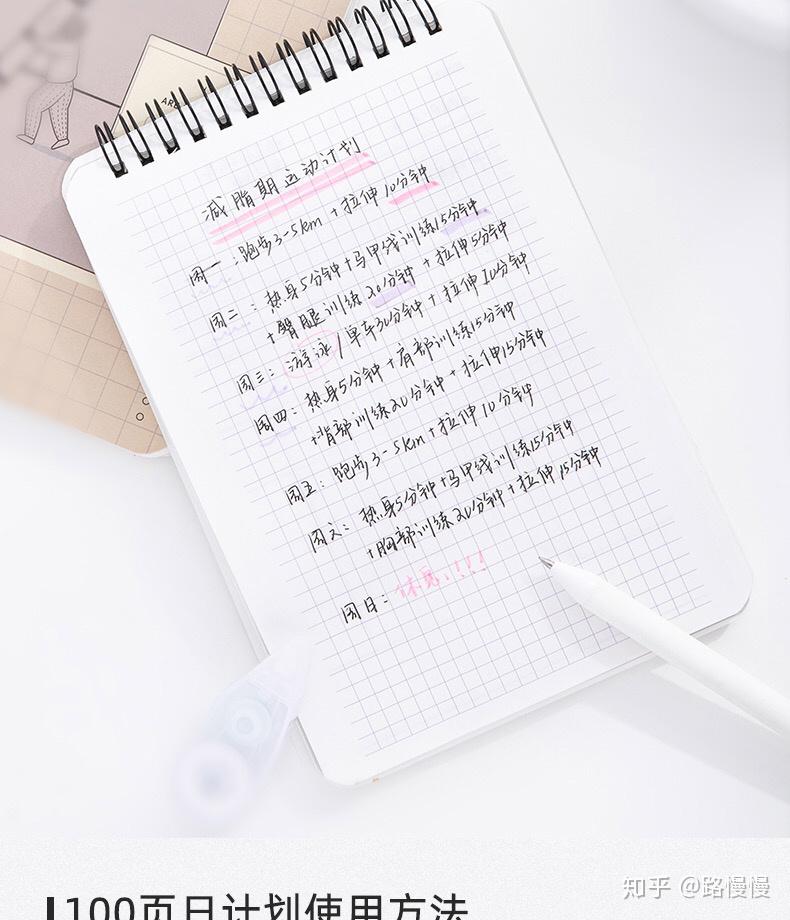 减脂期运动计划
周一：跑步3-5km+拉伸10分钟
周二：热身5分钟+马甲线训练15分钟
+臀腿训练20分钟+拉伸5分钟
周三：游泳/单车30分钟+拉伸10分钟
周四：热身5分钟+肩部训练15分钟
+背部训练20分钟+拉伸15分钟
周五：跑步3-5km+拉伸10分钟
周六：热身5分钟+马甲线训练15分钟
+胸部训练20分钟+拉伸15分钟
周日：休息！！！！
100页日计划使用方法
知乎 @路慢慢